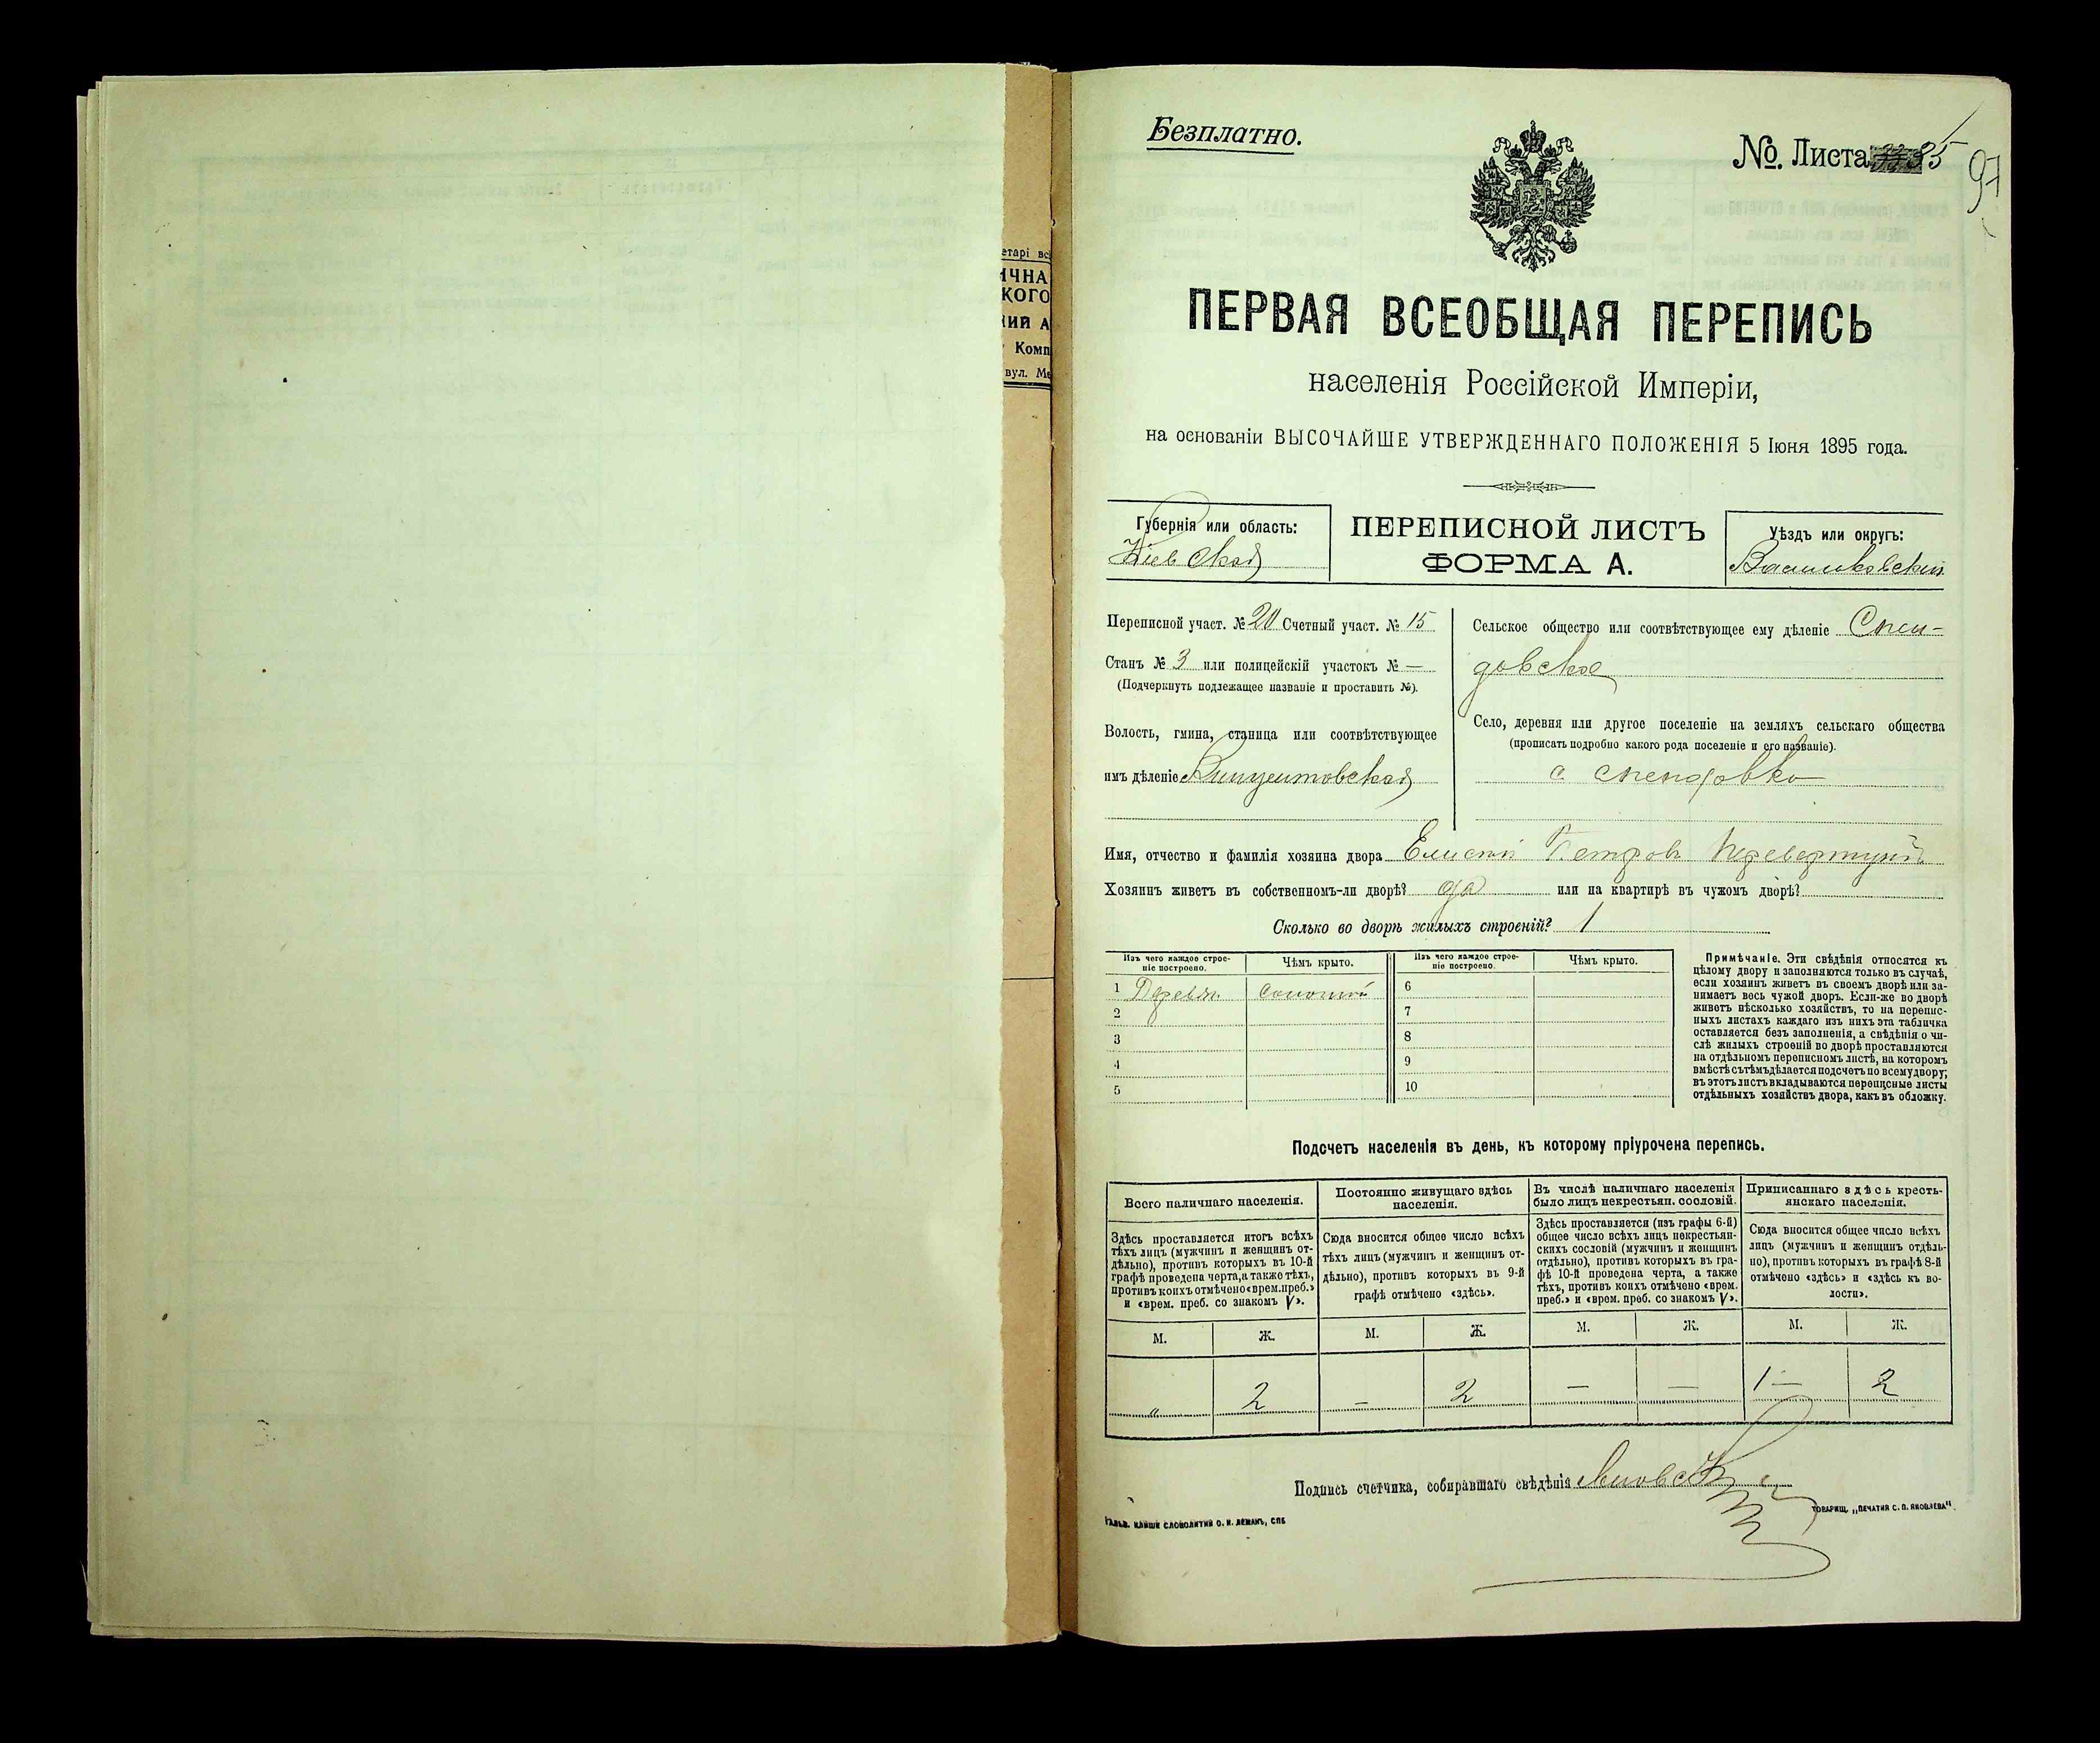 етарі вс
ІЧНА
КОГО
НИЙ А
Комп
вул. Ме
Безплатно.
№. Листа 35
97
ПЕРВАЯ ВСЕОБЩАЯ ПЕРЕПИСЬ
населенія Россійской Имперіи,
на основаніи ВЫСОЧАЙШЕ УТВЕРЖДЕННАГО ПОЛОЖЕНІЯ 5 Іюня 1895 года.
Губернія или область:
Кіевская
ПЕРЕПИСНОЙ ЛИСТЪ
ФОРМА А.
Уѣздъ или округъ:
Васильковскій
Переписной участ. № 20 Счетный участ. № 15
Станъ № 3 или полицейскій участокъ № —
(Подчеркнуть подлежащее названіе и проставить №).
Волость, гмина, станица или соотвѣтствующее
имъ дѣленіе Винцентовская
Сельское общество или соотвѣтствующее ему дѣленіе Спен-
довское
Село, деревня или другое поселеніе на земляхъ сельскаго общества
(прописать подробно какого рода поселеніе и его названіе).
с. Спендовка
Имя, отчество и фамилія хозяина двора Елисей Петров
Хозяинъ живетъ въ собственномъ-ли дворѣ? да или на квартирѣ въ чужомъ дворѣ?
Сколько во дворѣ жилыхъ строеній? 1
Изъ чего каждое строе-
ніе построено.
Чѣмъ крыто.
Изъ чего каждое строе-
ніе построено.
Чѣмъ крыто.
1 Дерев. соломой
2
3
4
5
6
7
8
9
10
Примѣчаніе. Эти свѣдѣнія относятся къ
цѣлому двору и заполняются только въ случаѣ,
если хозяинъ живетъ въ своемъ дворѣ или за-
нимаетъ весь чужой дворъ. Если-же во дворѣ
живетъ нѣсколько хозяйствъ, то на перепис-
ныхъ листахъ каждаго изъ нихъ эта табличка
оставляется безъ заполненія, а свѣдѣнія о чи-
слѣ жилыхъ строеній во дворѣ проставляются
на отдѣльномъ переписномъ листѣ, на которомъ
вмѣстѣ съ тѣмъ дѣлается подсчетъ по всему двору;
въ этотъ листъ вкладываются переписные листы
отдѣльныхъ хозяйствъ двора, какъ въ обложку.
Подсчетъ населенія въ день, къ которому пріурочена перепись.
Всего наличнаго населенія.
Постоянно живущаго здѣсь
населенія.
Въ числѣ наличнаго населенія
было лицъ некрестьян. сословій.
Приписаннаго здѣсь кресть-
янскаго населенія.
Здѣсь проставляется итогъ всѣхъ
тѣхъ лицъ (мужчинъ и женщинъ от-
дѣльно), противъ которыхъ въ 10-й
графѣ проведена черта, а также тѣхъ,
противъ коихъ отмѣчено «врем. преб.»
и «врем. преб. со знакомъ V».
Сюда вносится общее число всѣхъ
тѣхъ лицъ (мужчинъ и женщинъ от-
дѣльно), противъ которыхъ въ 9-й
графѣ отмѣчено «здѣсь».
Здѣсь проставляется (изъ графы 6-й)
общее число всѣхъ лицъ некрестьян-
скихъ сословій (мужчинъ и женщинъ
отдѣльно), противъ которыхъ въ гра-
фѣ 10-й проведена черта, а также
тѣхъ, противъ коихъ отмѣчено «врем.
преб.» и «врем. преб. со знакомъ V».
Сюда вносится общее число всѣхъ
лицъ (мужчинъ и женщинъ отдѣль-
но), противъ которыхъ въ графѣ 8-й
отмѣчено «здѣсь» и «здѣсь къ во-
лости».
М. Ж. М. Ж. М. Ж. М. Ж.
„ 2 — 2 — — 1 — 2
Подпись счетчика, собиравшаго свѣдѣнія
ГАЛЬВ. КЛИШЕ СЛОВОЛИТНИ О. И. ЛЕМАНЪ, СПБ
ТОВАРИЩ. „ПЕЧАТНЯ С. П. ЯКОВЛЕВА".